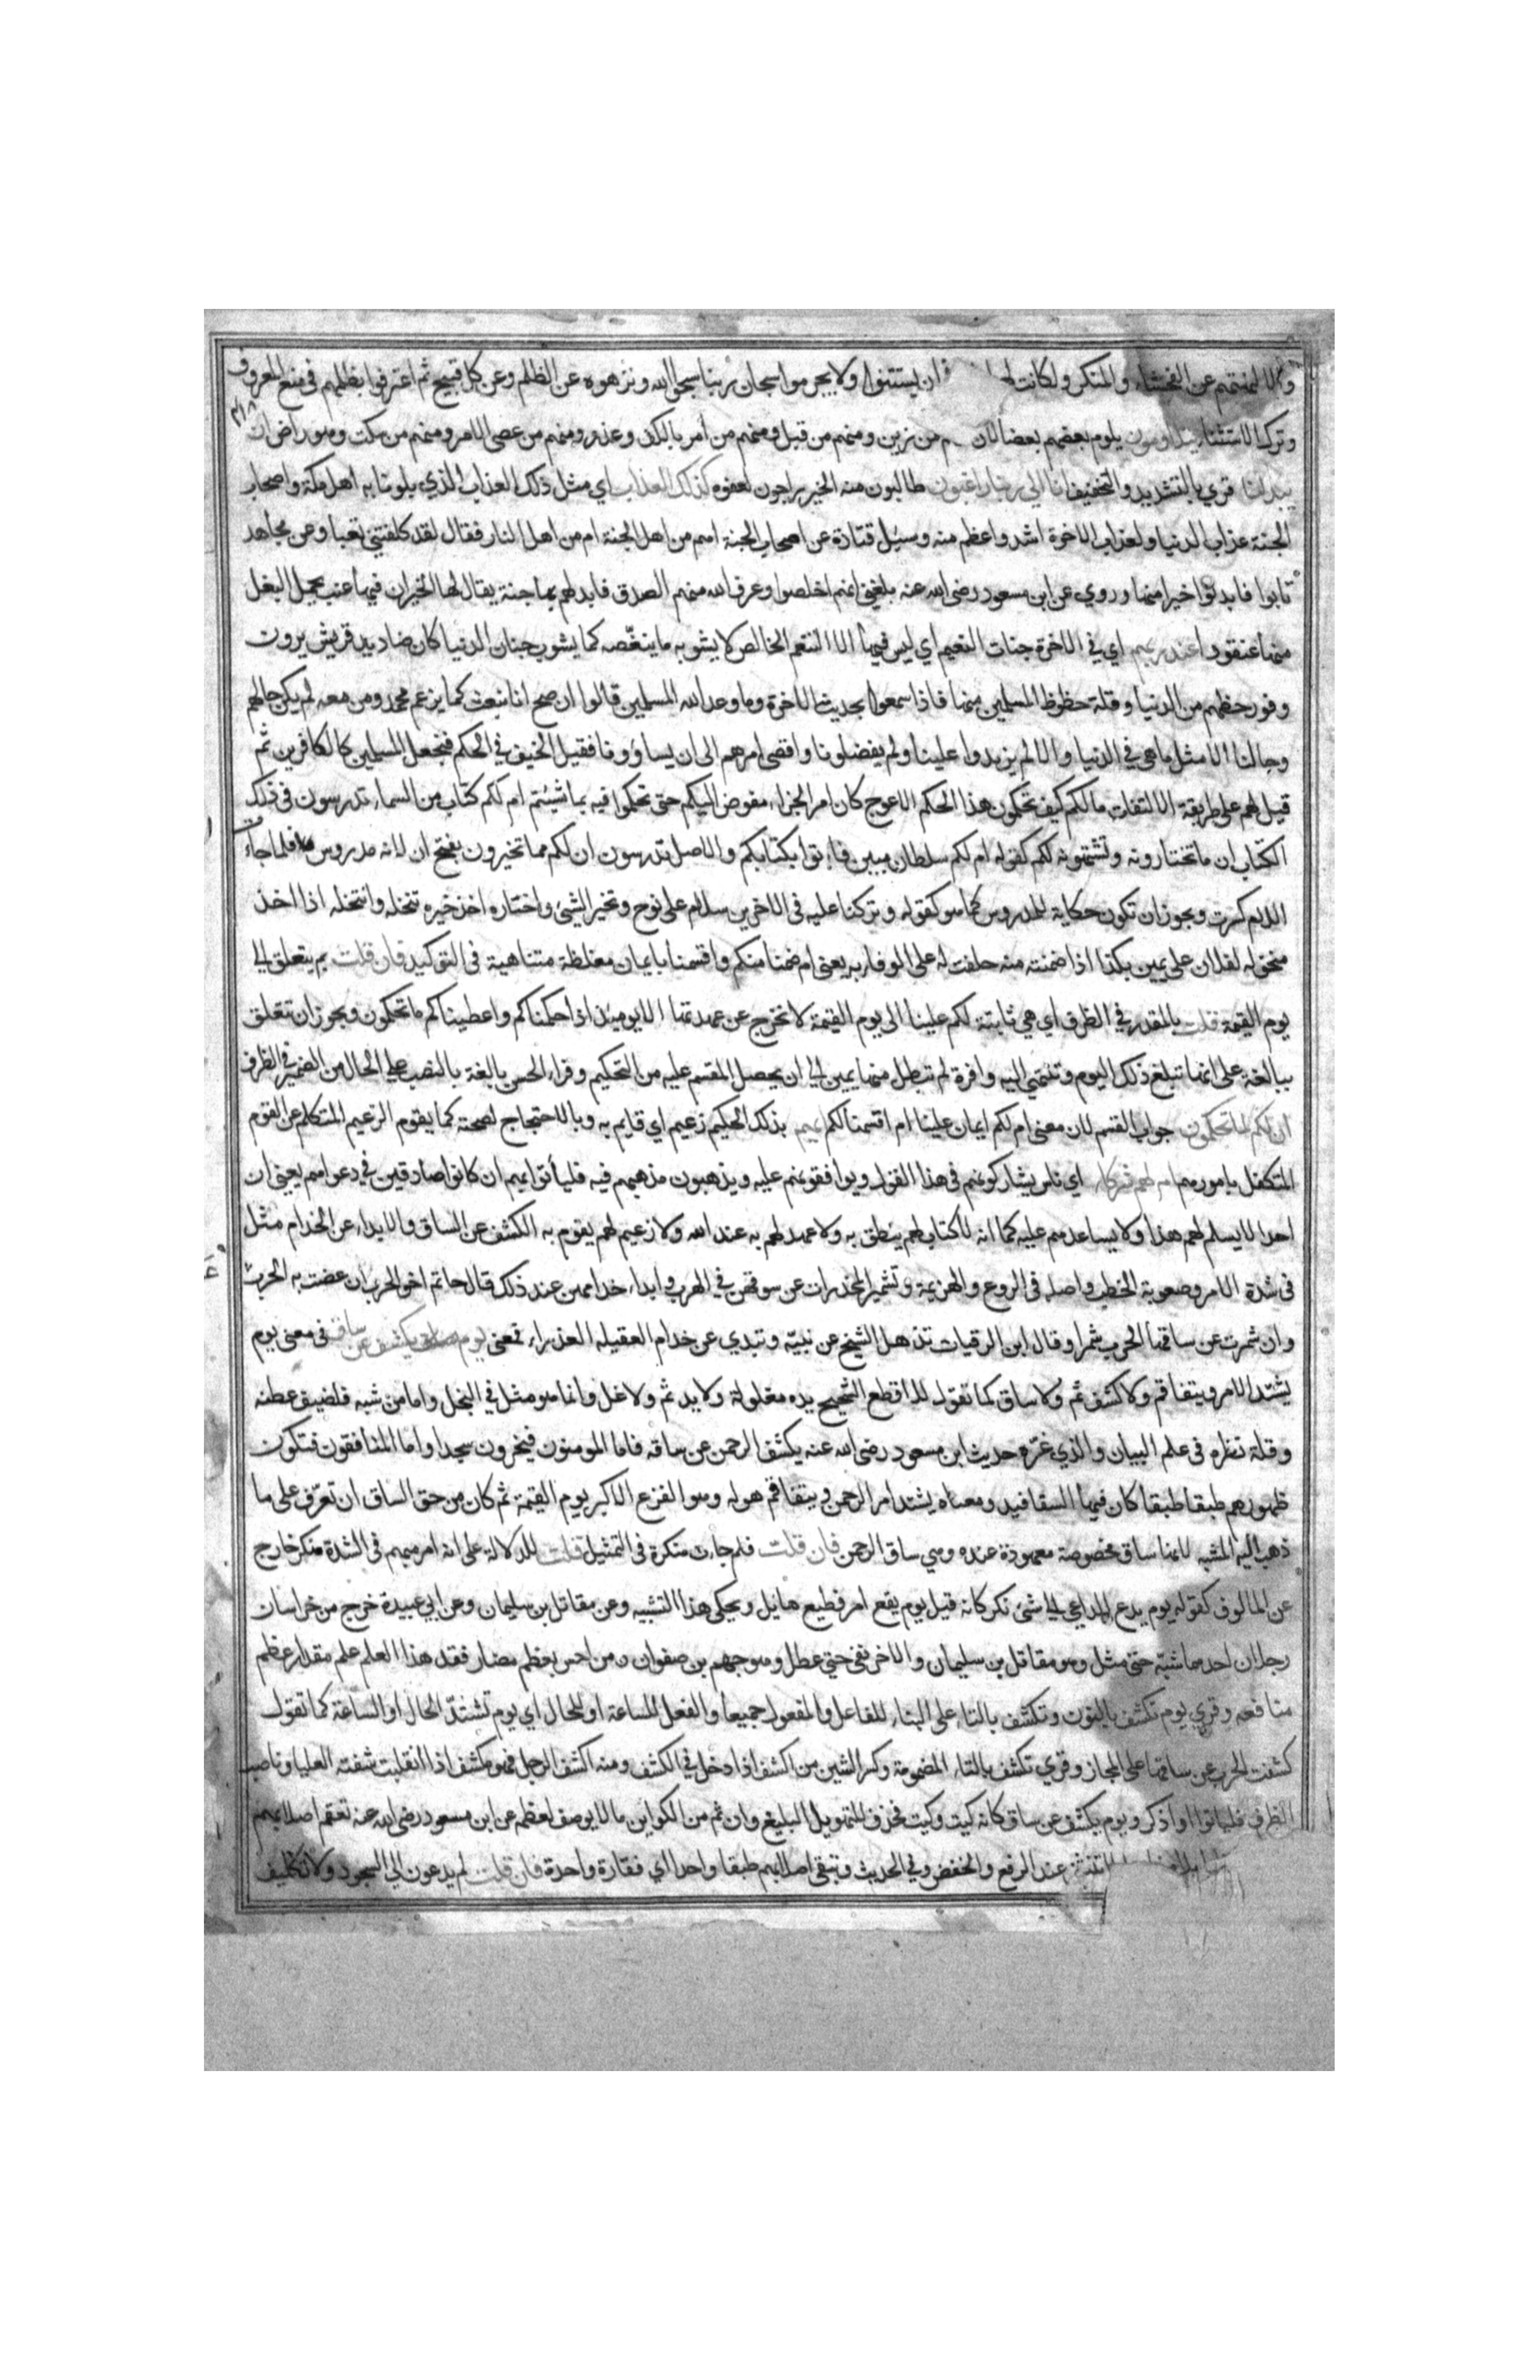 والا لمنعتهم عن الفحشاء والمنكر ولكانت فى ان يستثنوا ولا يجرموا سبحان ربنا سبحوا الله ونزهوه عن الظلم وعن كل قبيح ثم اعترفوا بظلمهم فى منع المعروف
وترك الاستثناء يتلاومون يلوم بعضهم بعضا لان من زين ومنهم من قبل ومنهم من امر بالكف وعذر ومنهم من عصى الامر ومنهم من سكت وهو راض ان
يبدلنا قري بالتشديد والتخفيف انا الى ربنا راغبون طالبون منه الخير راجون لعفوه كذلك العذاب اي مثل ذلك العذاب الذي بلونا به اهل مكة واصحاب
الجنة عذاب الدنيا ولعذاب الاخرة اشد واعظم منه وسيل قتادة عن اصحاب الجنة اهم من اهل الجنة ام من اهل النار فقال لقد كلفتني تعبا وعن مجاهد
تابوا فابدلوا خيرا منها وروي عن ابن مسعود رضى الله عنه بلغني انهم اخلصوا وعرف الله منهم الصدق فابدلهم بها جنة يقال لها الحيوان فيها عنب يحمل البغل
منها عنقودا عند ربهم اي فى الاخرة جنات النعيم اي ليس فيها الا التنعم الخالص لا يشوبه ما ينغصه كما يشوب جنان الدنيا كان صناديد قريش يرون
وفور حظهم من الدنيا وقلة حظوظ المسلمين منها فاذا سمعوا بحديث الاخرة وما وعد الله المسلمين قالوا ان صح انا نبعث كما يزعم محمد ومن معه لم يكن حالهم
وحالنا الا مثل ما هي في الدنيا والا لم يزيدوا علينا ولم يفضلونا واقصى امرهم الى ان يساوونا فقيل الحيف فى الحكم فنجعل المسلمين كالكافرين ثم
قيل لهم على طريقة الالتفات مالكم كيف تحكمون هذا الحكم الاعوج كان امر الجزاء مفوض اليكم حتى تحكموا فيه بما شيتم ام لكم كتاب من السماء تدرسون فى ذلك
الكتاب ان ما تختارونه وتشتهونه لكم كقوله ام لكم سلطان مبين فاتوا بكتابكم والاصل تدرسون ان لكم مما تخيرون بفتح ان لانه مدروس فلما جاءت
اللام كسرت ويجوز ان تكون حكاية للمدروس كما هو كقوله وتركنا عليه فى الاخرين سلام على نوح وتخير الشئ واختاره اخذ خيره تنخله وانتخله اذا اخذ
منخوله لفلان على يمين بكذا اذا ضمنته منه حلفت له على الوفاء به يعنى ام ضمنا منكم واقسمنا بايمان مغلظة متناهية فى التوكيد فان قلت بم يتعلق الى
يوم القيمة قلت بالمقدر في الظرف اي هي ثابتة لكم علينا الى يوم القيمة لا تخرج عن عهدتها الا يوميذ اذا حكمناكم واعطيناكم ما تحكمون ويجوز ان تتعلق
ببالغة على انها تبلغ ذلك اليوم وتنتهي اليه وافرة لم تبطل منها يمين الى ان يحصل المقسم عليه من التحكيم وقراء الحسن بالغة بالنصب على الحال من الضمير في الظرف
ان لكم لما تحكمون جواب القسم لان معنى ام لكم ايمان علينا ام اقسمنا لكم ايهم بذلك الحكم زعيم اي قايم به وبالاحتجاج لصحته كما يقوم الزعيم المتكلم عن القوم
المتكفل بامورهم ام لهم شركاء اي ناس يشاركونهم فى هذا القول ويوافقونهم عليه ويذهبون مذهبهم فيه فلياتوا بهم ان كانوا صادقين في دعواهم يعني ان
احدا لا يسلم لهم هذا ولا يساعدهم عليه كما انه لا كتاب لهم ينطق به ولا عهد لهم به عند الله ولا زعيم لهم يقوم به الكشف عن الساق والابداء عن الخدام مثل
فى شدة الامر وصعوبة الخطب واصله فى الروع والهزيمة وتشمير المخدرات عن سوقهن في الهرب وابداء خدامهن عند ذلك قال حاتم اخو الحرب ان عضت به الحرب
وان شمرت عن ساقها الحرب شمرا وقال ابن الرقيات تذهل الشيخ عن بنيه وتبدي عن خدام العقيلة العذراء فمعنى يوم يكشف عن ساق فى معنى يوم
يشتد الامر ويتفاقم ولا كشف ثم ولا ساق كما تقول للاقطع الشحيح يده مغلولة ولا يد ثم ولا غل وانما هو مثل في البخل واما من شبه فلضيق عطنه
وقلة نظره فى علم البيان والذي غره حديث ابن مسعود رضى الله عنه يكشف الرحمن عن ساقه فاما المومنون فيخرون سجدا واما المنافقون فتكون
ظهورهم طبقا طبقا كان فيها السفافيد ومعناه يشتد امر الرحمن ويتفاقم هوله وهو الفزع الاكبر يوم القيمة ثم كان من حق الساق ان تعرف على ما
ذهب اليه المشبه لانها ساق مخصوصة معهودة عنده وهي ساق الرحمن فان قلت فلم جات منكرة فى التمثيل قلت للدلالة على انه امر مبهم فى الشدة منكر خارج
عن المالوف كقوله يوم يدع الداعي الى شئ نكر كانه قيل يوم يقع امر فظيع هايل ويحكى هذا التشبيه وعن مقاتل بن سليمان وعن ابي عبيدة خرج من خراسان
رجلان احدهما شبه حتى مثل وهو مقاتل بن سليمان والاخر نفى حتى عطل وهو جهم بن صفوان ومن احس بعظم مضار فقد هذا العلم علم مقدار عظم
منافعه وقري يوم نكشف بالنون وتكشف بالتاء على البناء للفاعل والمفعول جميعا والفعل للساعة او للحال اي يوم تشتد الحال او الساعة كما تقول
كشفت الحرب عن ساقها على المجاز وقري تكشف بالتاء المضمومة وكسر الشين من اكشف اذا دخل في الكشف ومنه اكشف الرجل فهو مكشف اذا انقلبت شفته العليا وناصب
الظرف فلياتوا او اذكر ويوم يكشف عن ساق كانه كيت وكيت فحذف للتهويل البليغ وان ثم من الكواين ما لا يوصف لعظمه عن ابن مسعود رضى الله عنه تعقم اصلابهم
تنثنى عند الرفع والخفض وفي الحديث وتبقى اصلابهم طبقا واحدا اي فقارة واحدة فان قلت لم يدعون الى السجود ولا تكليف